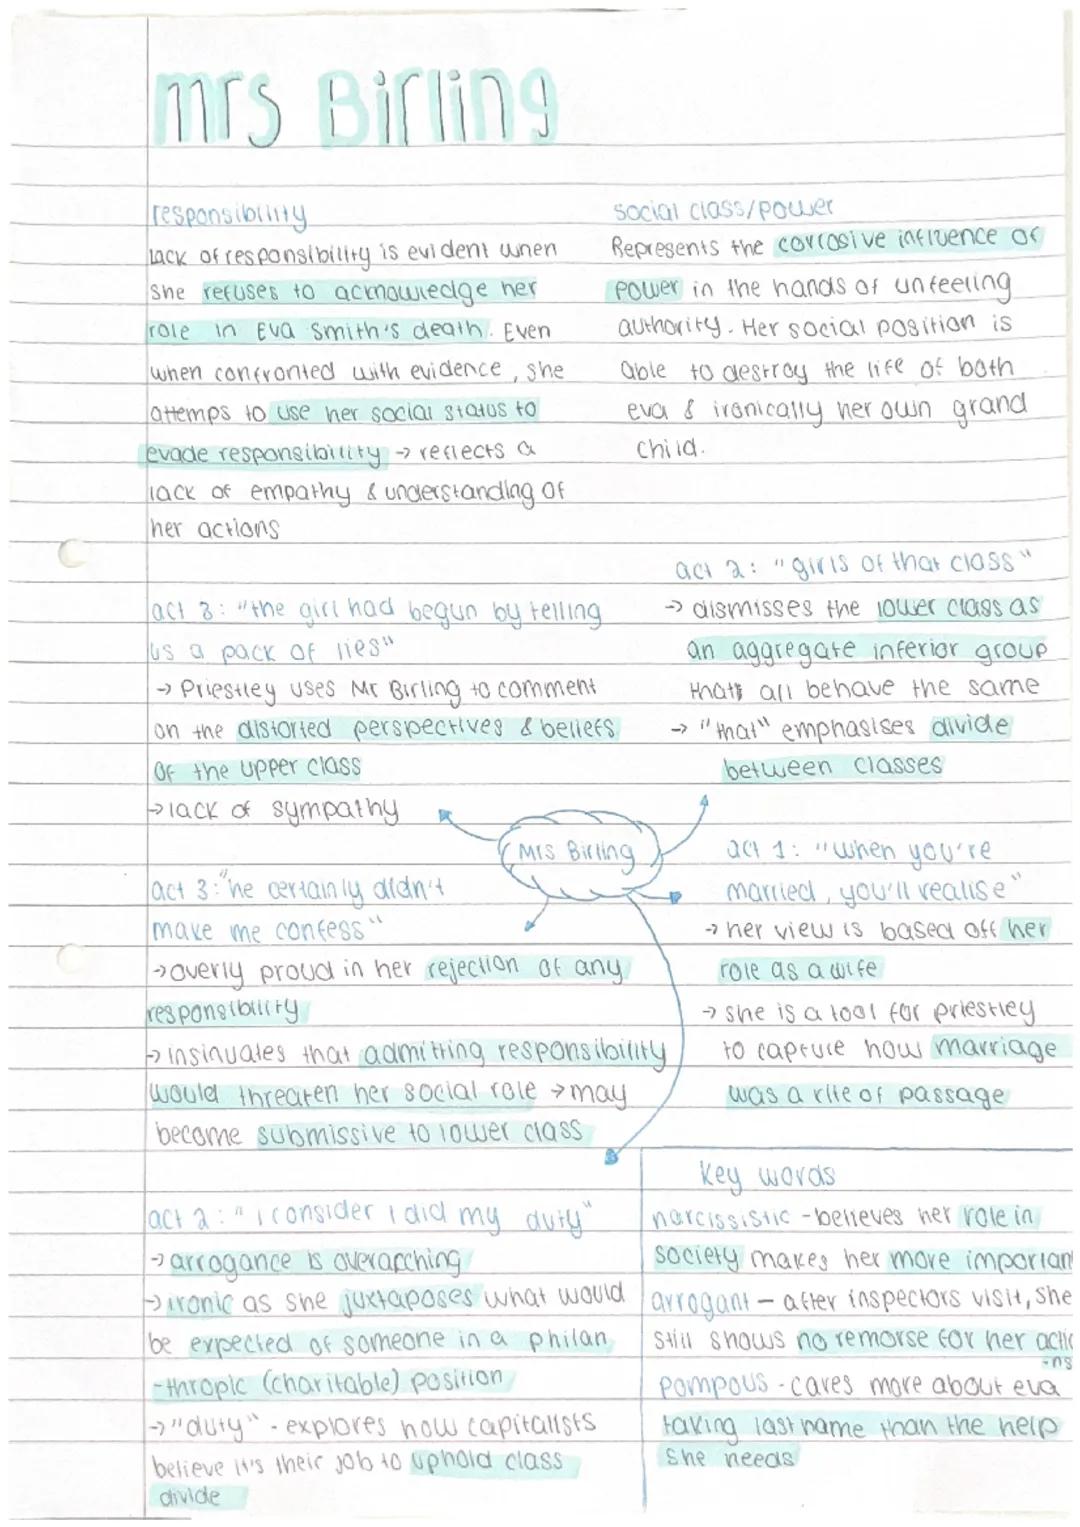 mrs Birling
responsibility
lack of responsibility is evident when
she refuses to acknowledge her
role in Eva Smith's death. Even
when confronted with evidence, she
attemps to use her social status to
evade responsibility → reflects a
lack of empathy & understanding of
her actions
social class/power
Represents the corrosive influence of
power in the hands of unfeeling
authority. Her social position is
able to destroy the life of both
eva & ironically her own grand
child.
act 2: "girls of that class"
→ dismisses the lower class as
an aggregate inferior group
thats all behave the same
→ "that" emphasises divide
between classes
act 3: "the girl had begun by telling
us a pack of lies"
→ Priestley uses Mr Birling to comment
on the distorted perspectives & beliefs
of the upper class
→ lack of sympathy
Mrs Birling
act 1: "when you're
married, you'll realise"
→ her view is based off her
role as a wife
→ she is a tool for priestley
to capture how marriage
was a rite of passage
act 3: "he certainly didn't
make me confess"
→ overly proud in her rejection of any
responsibility
→ insinuates that admitting responsibility
would threaten her social role → may
become submissive to lower class
act 2: "I consider I did my duty"
→ arrogance is overarching
→ ironic as she juxtaposes what would
be expected of someone in a philan
-thropic (charitable) position
→ "duty" - explores how capitalists
believe it's their job to uphold class
divide
key words
narcissistic - believes her role in
society makes her more important
arrogant - after inspectors visit, she
still shows no remorse for her actio
-ns
pompous - cares more about eva
taking last name than the help
she needs